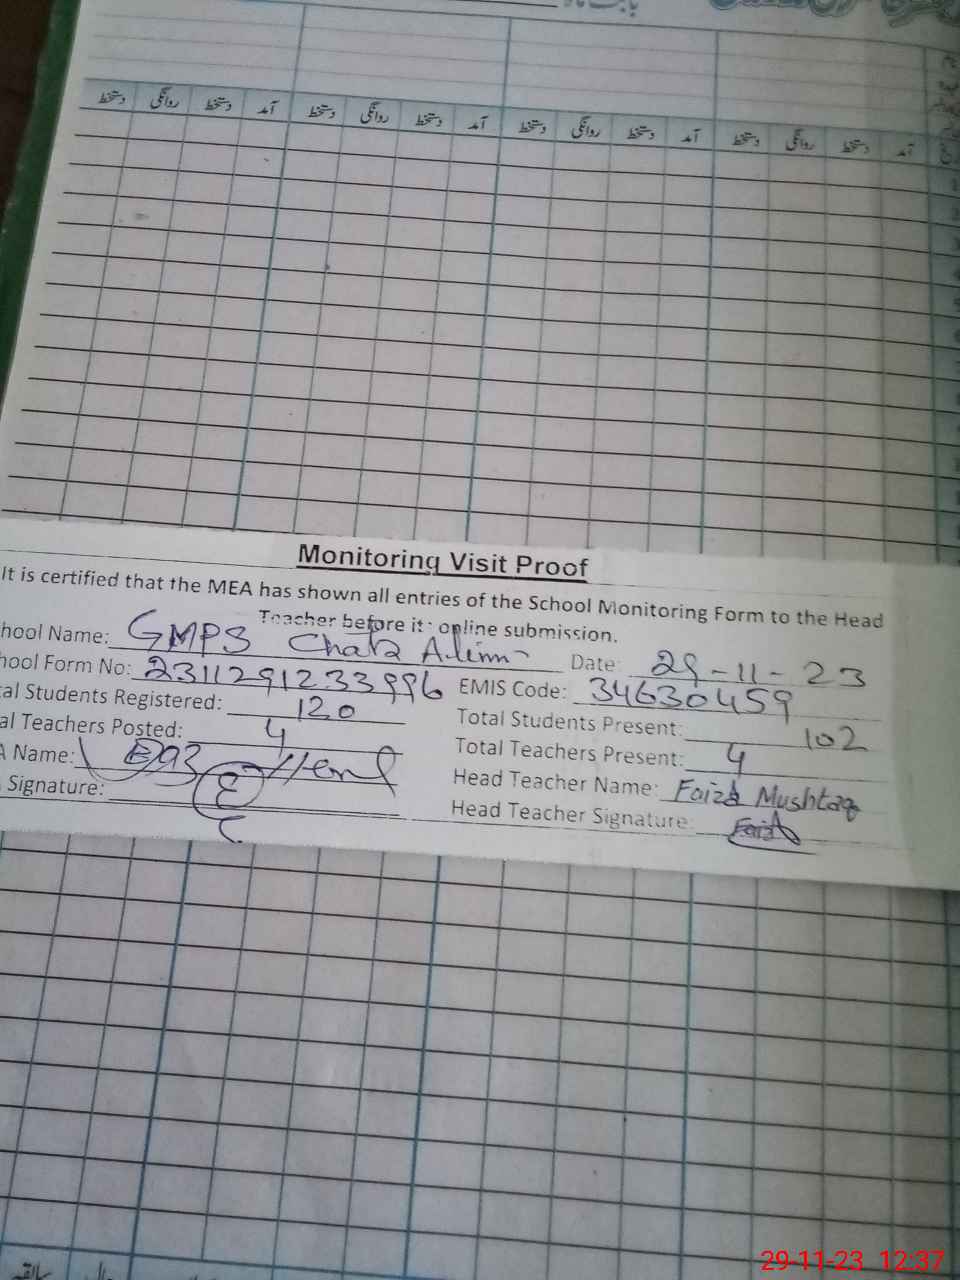 دستخط روانگی دستخط آمد دستخط روانگی دستخط آمد دستخط روانگی دستخط آمد دستخط روانگی دستخط آمد
Monitoring Visit Proof
It is certified that the MEA has shown all entries of the School Monitoring Form to the Head
Teacher before it's online submission.
hool Name: GMPS Chak Date: 29-11-23
hool Form No: 2311291233996 EMIS Code: 34630459
al Students Registered: 120 Total Students Present: 102
al Teachers Posted: 4 Total Teachers Present: 4
A Name: Head Teacher Name: Faiza Mushtaq
Signature: Head Teacher Signature: Faiza
29-11-23 12:37